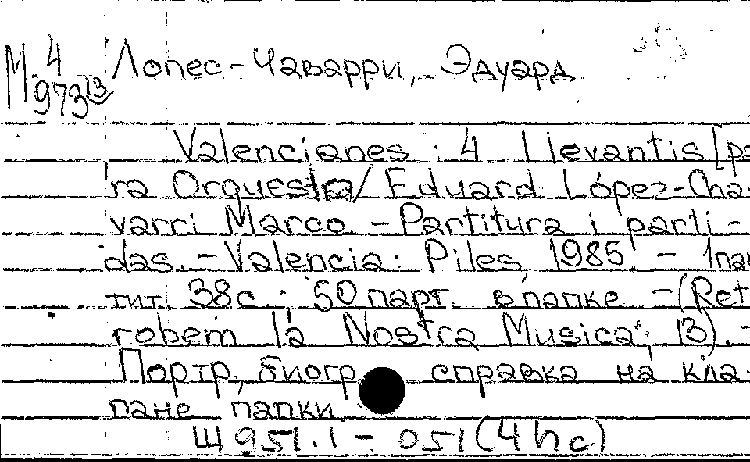 М 4 Лопес-Чаварри, Эдуард
973 13
Valencianes : 4 Llevantis [pa
ra Orquestra / Eduard López-Cha-
varri Marco - Partitura i parti-
das. - Valencia: Piles, 1985. - 1 пар
тит. 38с. : 50 парт. в папке - (Ret
robem la Nostra Musica; 13). -
Портр., биогр. справка на кла-
пане папки.
Щ951.1-051(4Ис)